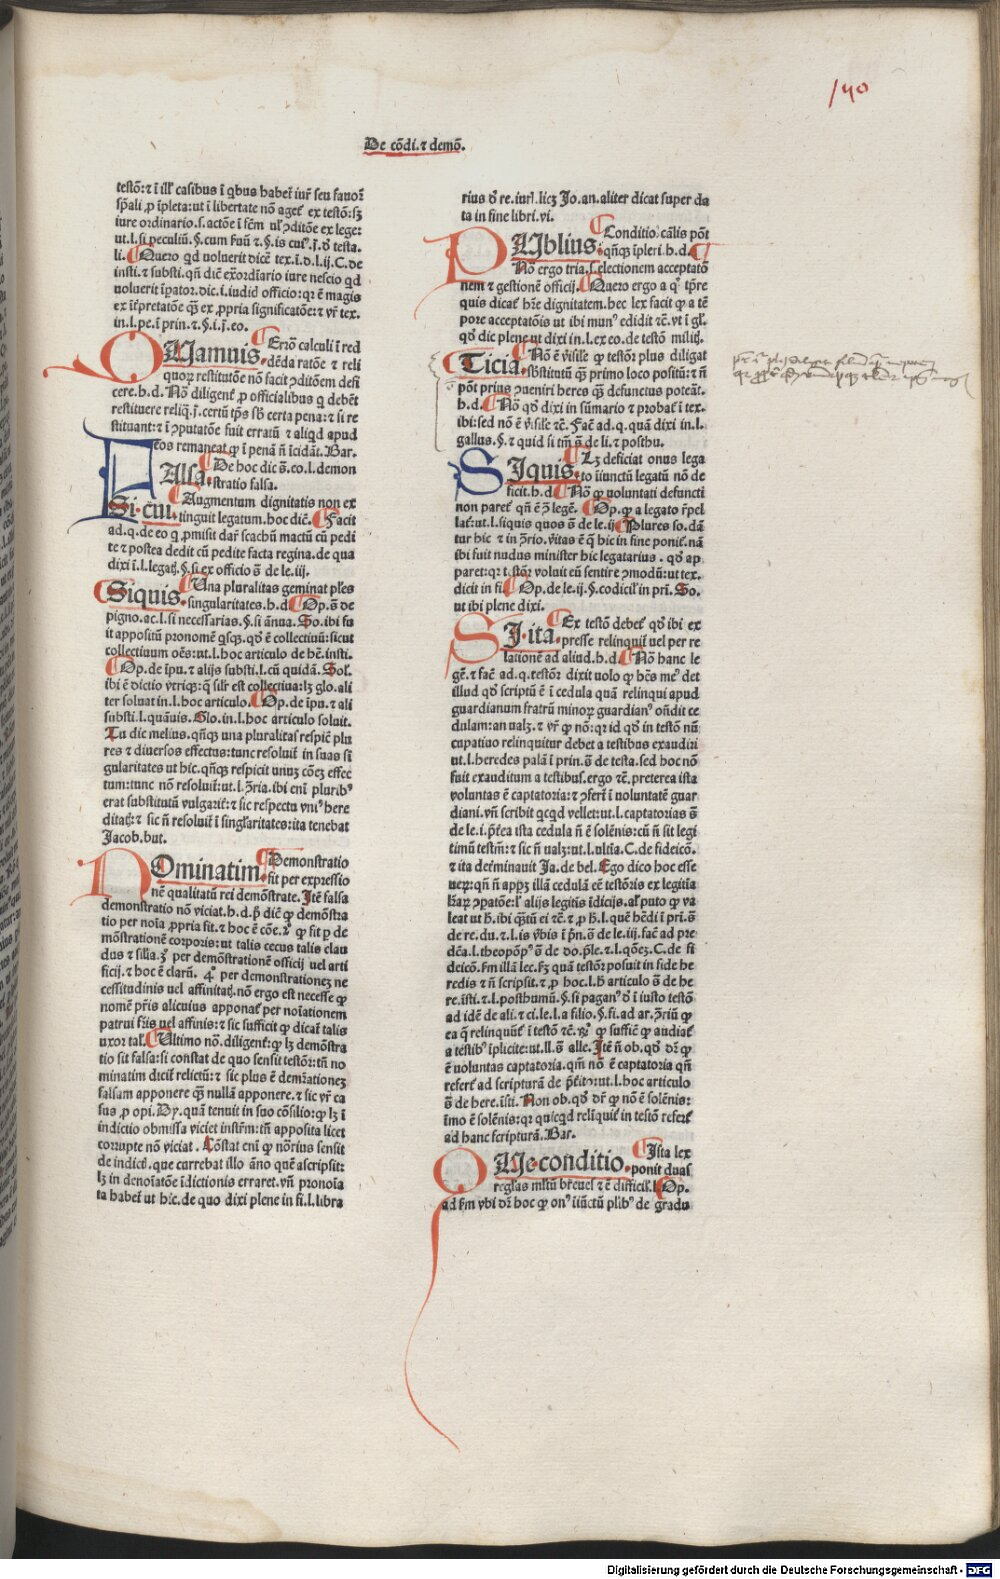 140
De cōdi. ⁊ demō.
testō: ⁊ ī ill' casibus ī q̇bus habet iur̄ seu fauor̄
sp̄ali ,p īpleta: ut ī libertate nō aget̄ ex testō: sꝫ
iure ordinario. s. actōe ī fcm̄ ul' ꝯditōe ex lege:
ut. l. si peculiū. §. cum
li. Quero qd uoluerit dicē tex. ī. d. l. ij. C. de
insti. ⁊ substi. qn̄ dicē exordīario iure nescio qd
voluerit īpator. dic. ī. iudid officio: qꝛ ē magis
ex īt̄pretatōe qꝫ ex ,ppria significatōe: ⁊ vr̄ tex.
in. l. pe. ī prin. ⁊. §. i. j. eo.
QUamuis. Erro calculi ī red
dēda ratōe ⁊ reli
quoꝝ restitutōe nō facit ꝯditōem defi
cere. h. d. Nō diligent̄ ꝙ officialibus q̇ debēt
restituere reliq̄. j. certū tp̄s sb̄ certa pena: ⁊ si re
stituant: ⁊ ī ꝯputatōe fuit erratū ⁊ aliqd apud
eos remaneat ꝙ ī penā n̄ īcidāt. Bar.
FAlsa De hoc dic s̄. eo. l. demon
stratio falsa.
Si. cui. Augmentum dignitatis non ex
tinguit legatum. hoc diē. Facit
ad. q. de eo q̇ ,pmisit dar̄ scachū mactū cū pedi
te ⁊ postea dedit cū pedite facta regina. de qua
dixi ī. l. legatꝫ. §. si ex officio s̄. de le. iij.
Siquis. Una pluralitas geminat pl'es
singularitates. h. d. Op. s̄. de
pigno. ac. l. si necessarias. §. si ānua. So. ibi fu
it appositū pronomē qsqꝫ. qd' ē collectiuū: sicut
collectiuum oēs: ut. l. hoc articulo de hē. insti.
Op. de īpu. ⁊ alijs substi. l. cū quidā. Sol'.
ibi ē dictio vtriqꝫ: q̄ silr̄ est collectiua: lꝫ glo. ali
ter soluat in. l. hoc articulo. Op. de īpu. ⁊ ali
substi. l. quāuis. Glo. in. l. hoc articulo soluit.
Tu dic melius. qn̄qꝫ una pluralitas respic̄ plu
res ⁊ diuersos effectus: tunc resoluit̄ in suas si
gularitates ut hic. qn̄qꝫ respicit unuꝫ cōeꝫ effec
tum: tunc nō resoluit̄: ut. l. ꝯria. ibi enī pluribꝰ
erat substitutū vulgarit̄: ⁊ sic respectu vniꝰ here
ditatꝫ: ⁊ sic n̄ resoluit̄ ī singl'aritates: ita tenebat
Jacob. but.
NOminatim. Demonstratio
fit per expressio
nē qualitatū rei demōstrate. Itē falsa
demonstratio nō viciat. h. d. p̄ dicē ꝙ demōstra
tio per noīa ,ppria fit. ⁊ hoc ē cōe. 2° ꝙ fit p de
mōstrationē corporis: ut talis cecus talis clau
dus ⁊ silia. 3° per demōstrationē officij uel arti
ficij. ⁊ hoc ē clarū. 4° per demonstrationeꝫ ne
cessitudinis uel affinitatꝫ. nō ergo est necesse ꝙ
nomē pr̄is alicuius apponat̄ per noīationem
patrui fr̄is uel affinis: ⁊ sic sufficit ꝙ dicat̄ talis
uxor tal'. Ultimo nō. diligent̄: ꝙ lꝫ demōstra
tio sit falsa: si constat de quo sensit testōr: tn̄ no
minatim dicit̄ relictū: ⁊ sic plus ē demr̄ationeꝫ
falsam apponere qꝫ nullā apponere. ⁊ sic vr̄ ca
sus ,p opi. Dy. quā tenuit in suo cōsilio: ꝙ lꝫ ī
indictio obmissa viciet instrm̄: tn̄ apposita licet
corrupte nō viciat. Cōstat enī ꝙ nōrius sensit
de indict̄. que currebat illo āno quē ascripsit:
lꝫ in denoīatōe īdictionis erraret. vn̄ pronoīa
ta habet̄ ut hic. de quo dixi plene in fi. l. libra
rius d' re. iur. l. licꝫ Jo. an. aliter dicat super da
ta in fine libri. vi.
PUblius. Conditio cālis pōt
qn̄qꝫ īpleri. h. d.
Nō ergo tria. s. electionem acceptatō
nem ⁊ gestionē officij. Quero ergo a q° tp̄re
quis dicat̄ hr̄e dignitatem. hec lex facit ꝙ a tē
pore acceptatōis ut ibi munꝰ edidit ⁊c. vt ī gl'.
qd' dic plene ut dixi in. l. ex eo. de testō militꝫ.
Ticia. Nō ē v̄isile ꝙ testōr plus diligat
sbstitutū qꝫ primo loco positū: ⁊ n̄
pōt prius ꝯueniri heres qꝫ defunctus poteāt.
h. d. Nō qd' dixi in sūmario ⁊ probat̄ ī tex.
ibi: sed nō ē v̄isile ⁊c. Facē ad. q. quā dixi in. l.
gallus. §. ⁊ quid si tm̄ s̄. de li. ⁊ posthu.
SIquis. Lꝫ deficiat onus lega
to īiunctū legatū nō de
ficit. h. d. Nō ꝙ voluntati defuncti
non paret̄ qn̄ ē ꝯ legē. Op. ꝙ a legato r̄pel
lat̄: ut. l. siquis quos s̄. de le. ij. Plures so. dā
tur hic ⁊ in ꝯrio. v̄itas ē q̄ hic in fine ponit̄. nā
ibi fuit nudus minister hic legatarius. qd' ap
paret: qꝛ testōr voluit eū sentire ꝯmodū: ut tex.
dicit in fi. Op. de le. ij. §. codicil' in pri. So.
ut ibi plene dixi.
SI. ita. Ex testō debet̄ qd' ibi ex
presse relinquit̄ uel per re
lationē ad aliud. h. d. Nō hanc le
gē. ⁊ facē ad. q. testōr dixit uolo ꝙ hēs meꝰ det
illud qd' scriptū ē ī cedula quā relinqui apud
guardianum fratrū minoꝝ guardianꝰ on̄dit ce
dulam: an ualꝫ. ⁊ vr̄ ꝙ nō: qꝛ id qd' in testō nū
cupatiuo relinquitur debet a testibus exaudiri
ut. l. heredes palā ī prin. s̄. de testa. sed hoc nō
fuit exauditum a testibus. ergo ⁊c. preterea ista
voluntas ē captatoria: ⁊ ꝯfert̄ ī voluntatē guar
diani. vn̄ scribit qcqd vellet: ut. l. captatorias s̄
de le. i. p̄tea ista cedula n̄ ē solēnis: cū n̄ sit legi
timū testm̄: ⁊ sic n̄ ualꝫ: ut. l. ultīa. C. de fideicō.
⁊ ita det̄minauit Ja. de bel. Ego dico hoc esse
ueꝝ: qn̄ n̄ appꝫ illā cedulā cē testōris ex legitīa
lr̄aꝝ ꝯpatōe: l' alijs legitīs īdicijs. al' puto ꝙ va
leat ut h̄. ibi qꝫtū ei ⁊c. ⁊ ꝙ h̄. l. quē hēdi ī pri. s̄.
de re. du. ⁊ l. is v̄bis ī p̄n. s̄. de le. iij. facē ad pre
dc̄a. l. theopōpꝰ s̄. de do. p̄le. ⁊ l. qōeꝫ. C. de fi
deicō. s̄m illā lec. sꝫ quā testōr posuit in fide he
redis ⁊ n̄ scripsit. ⁊ ,p hoc. l. h̄ articulo s̄. de he
re. īsti. ⁊ l. posthumū. §. si paganꝰ d' ī iusto testō
ad idē de ali. ⁊ ci. le. l. a filio. §. fi. ad ar. ꝯriū ꝙ
ea q̄ relinquūt̄ ī testō ⁊c. R° ꝙ suffic̄ ꝙ audiat̄
a testibꝰ īplicite: ut. ll. s̄. alle. Itē n̄ ob. qd' dr̄ ꝙ
ē uoluntas captatoria. qm̄ nō ē captatoria qn̄
refert̄ ad scripturā de p̄tito: ut. l. hoc articulo
s̄. de here. īsti. Non ob. qd' dr̄ ꝙ nō ē solēnis:
īmo ē solēnis: qꝛ quicqd reliquit̄ in testō refert̄
ad hanc scripturā. Bar.
QUe. conditio. Ista lex
ponit duas
regl'as mltū breues ⁊ ē difficil'. l. Op.
ad s̄m vbi dr̄ hoc ꝙ onꝰ iiūctū plībꝰ de gradu
Digitalisierung gefördert durch die Deutsche Forschungsgemeinschaft - DFG